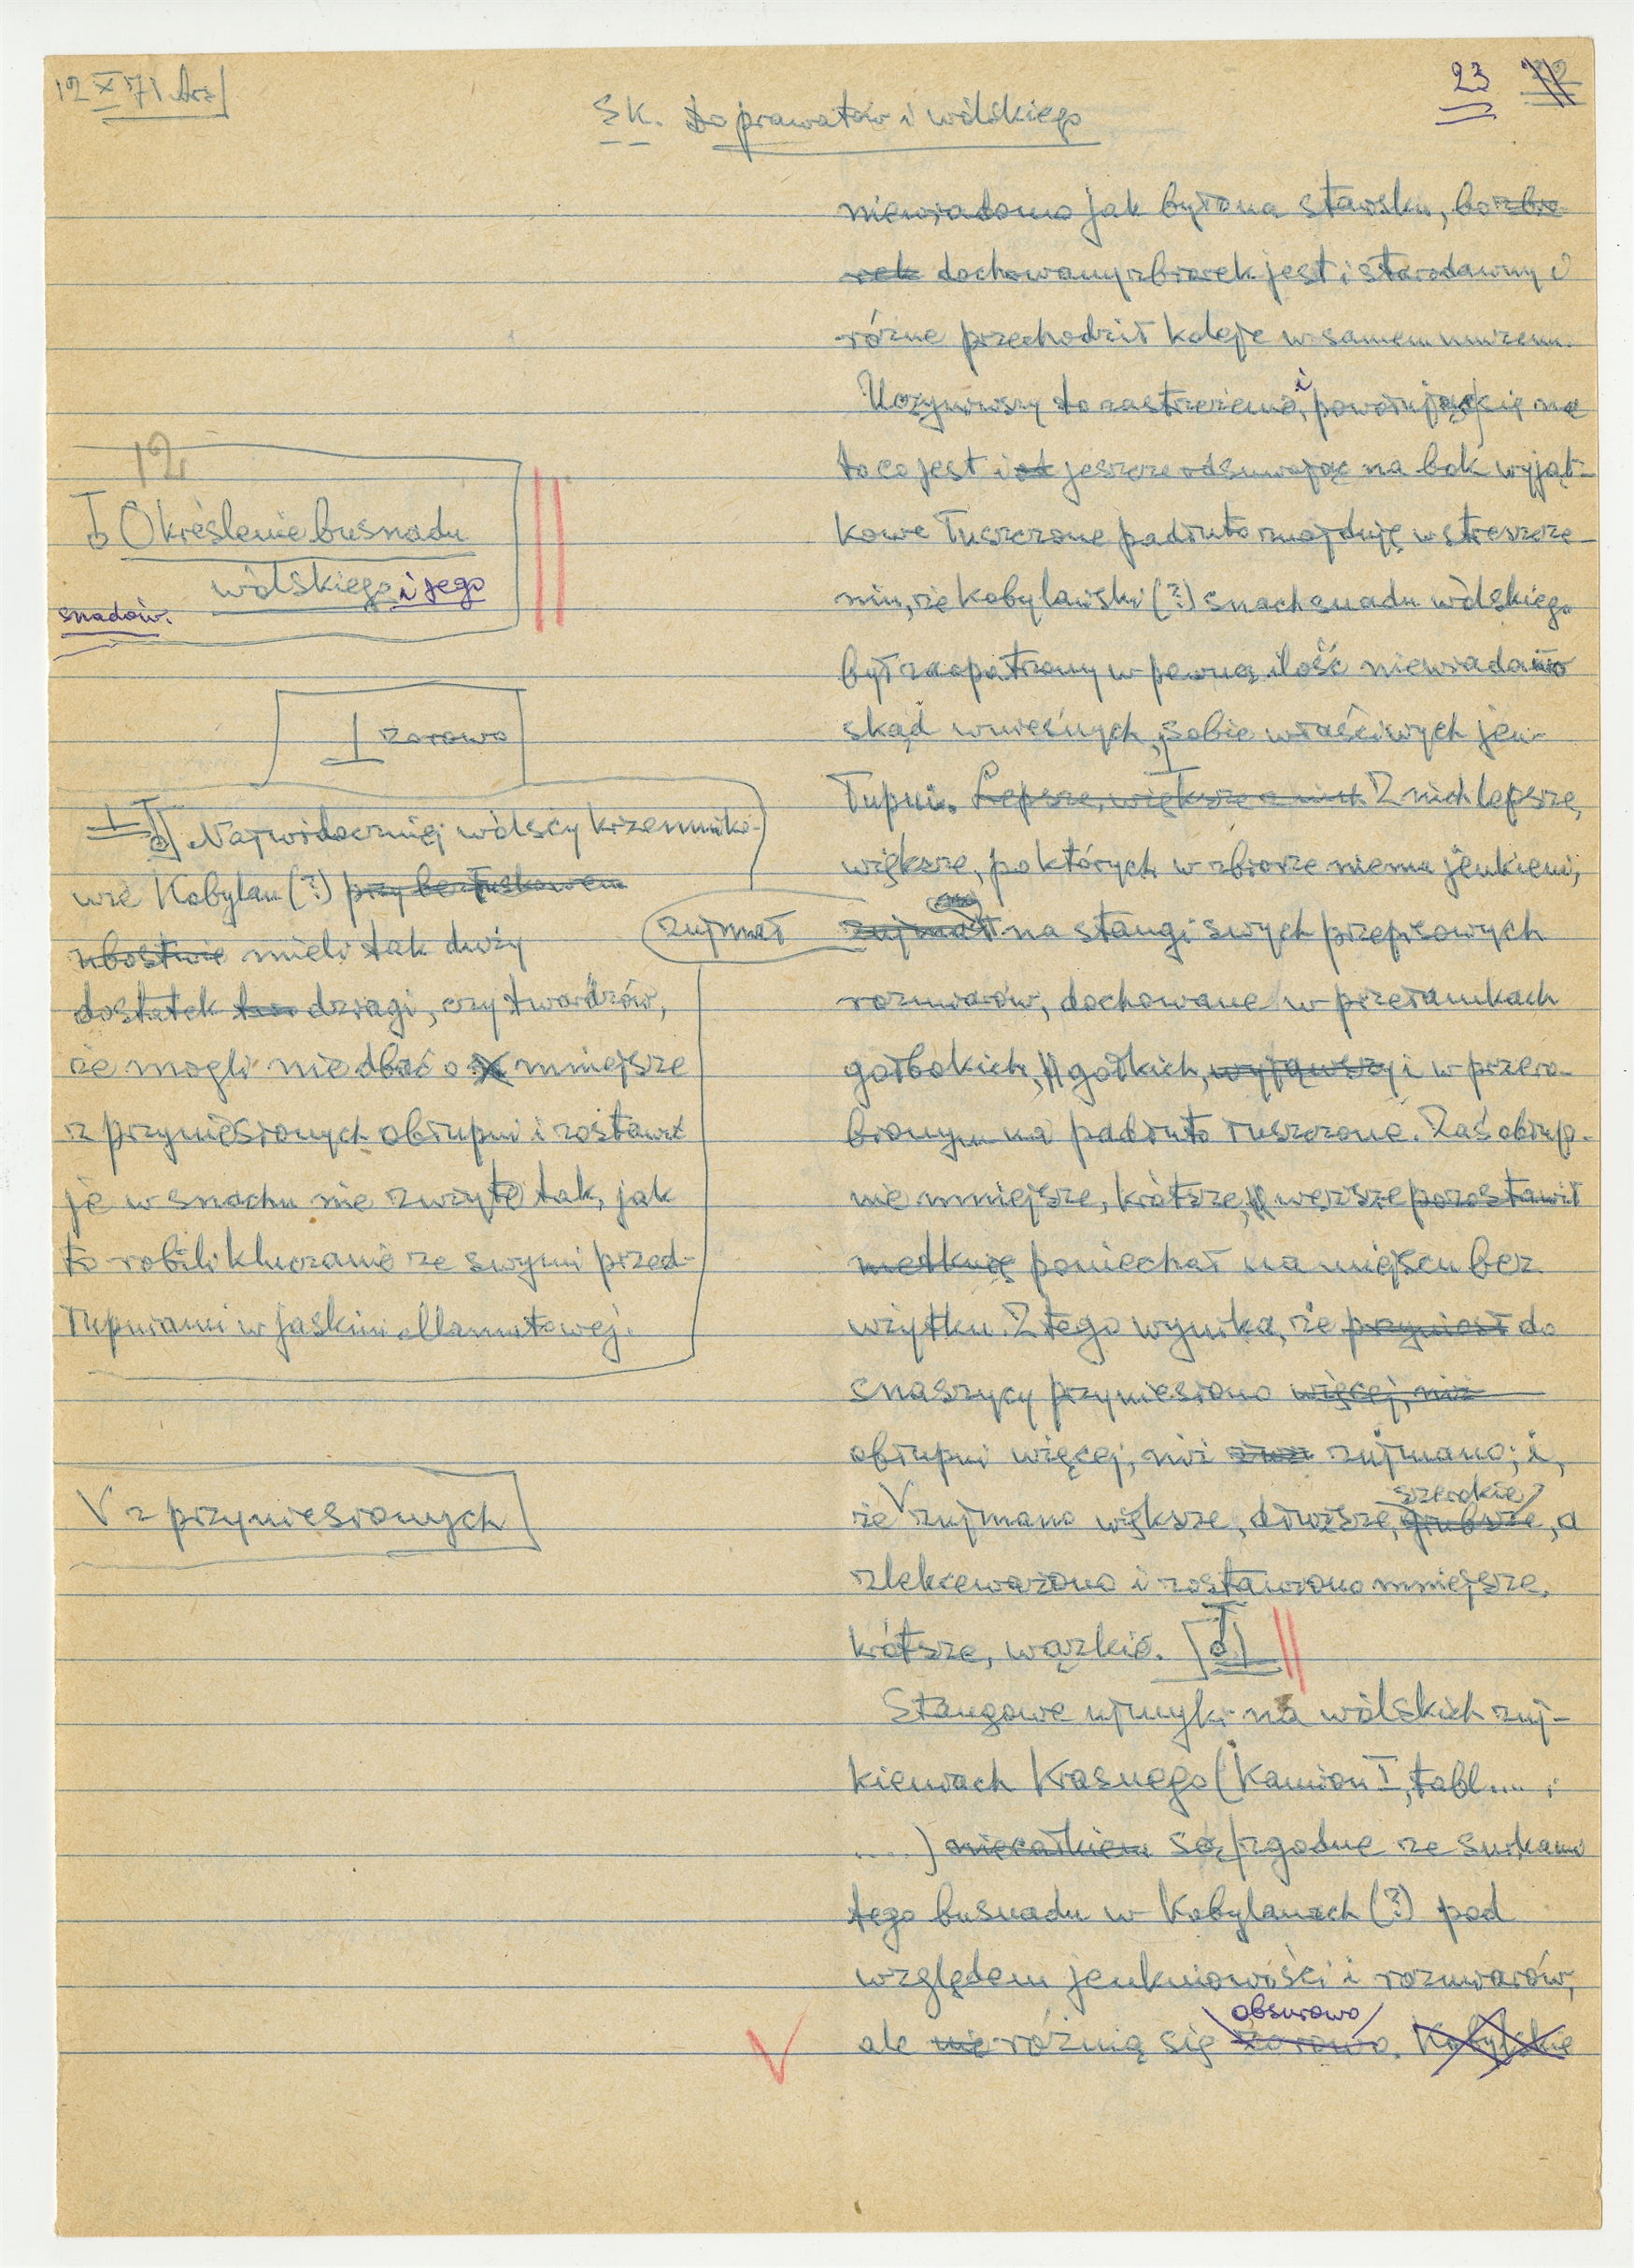 12 X 71
23
SK. Do prawatów i wólskiego
niewiadomo jak było na starsku, bo zbio-
rek dochowany zbiorek jest i starodawny i
różne przechodził koleje w samem muzeum.
Uczyniwszy to zastrzeżenie, i powołując się na
to co jest i jeszcze odsuwając na bok wyjąt-
kowe łuszczone padłuto znajduję w streszcze-
niu, że kobylański (?) snach snadu wólskiego
był zaopatrzony w pewną ilość niewiadomo
skąd wznieśnych, sobie właściwych jen-
łupni. Lepsze, większe z nich Z nich lepsze,
większe, po których w zbiorze niema jenkieni,
zujmał na stangi swych przepisowych
rozmiarów, dochowane w przełamkach
gołbokich, gołkich, wyjąwszy i w przero-
bionym na padłuto łuszczone. Zaś obłup-
nie mniejsze, krótsze, węższe pozostawił
poniechał na miejscu bez
użytku. Z tego wynika, że przyniósł do
snaszycy przyniesiono więcej, niż
obłupni więcej, niż zujmano; i,
że V zujmano większe, dłuższe, grubsze szerokie, a
zlekceważono i zostawiono mniejsze,
krótsze, wązkie.
Stangowe ujmyki na wólskich zuj-
kieniach Krasnego (Kamion I, tabl.... i
....) niecałkiem są zgodne ze snikami
tego busnadu w Kobylanach (?) pod
względem jenkniowości i rozmiarów,
ale nie różnią się zarowo obsurowo. Kobylskie
12
Określenie busnadu
wólskiego i jego
snadów.
zarowo
Najwidoczniej wólscy krzemniko-
wie Kobylan (?) przy bezłuskowem
ubóstwie mieli tak duży
dostatek dziagi, czy twardzów,
że mogli nie dbać o mniejsze
z przyniesionych obłupni i zostawić
je w snachu nie zużyte tak, jak
to robili kluczanie ze swymi przed-
łupniami w jaskini Mamutowej.
zujmał
V z przyniesionych